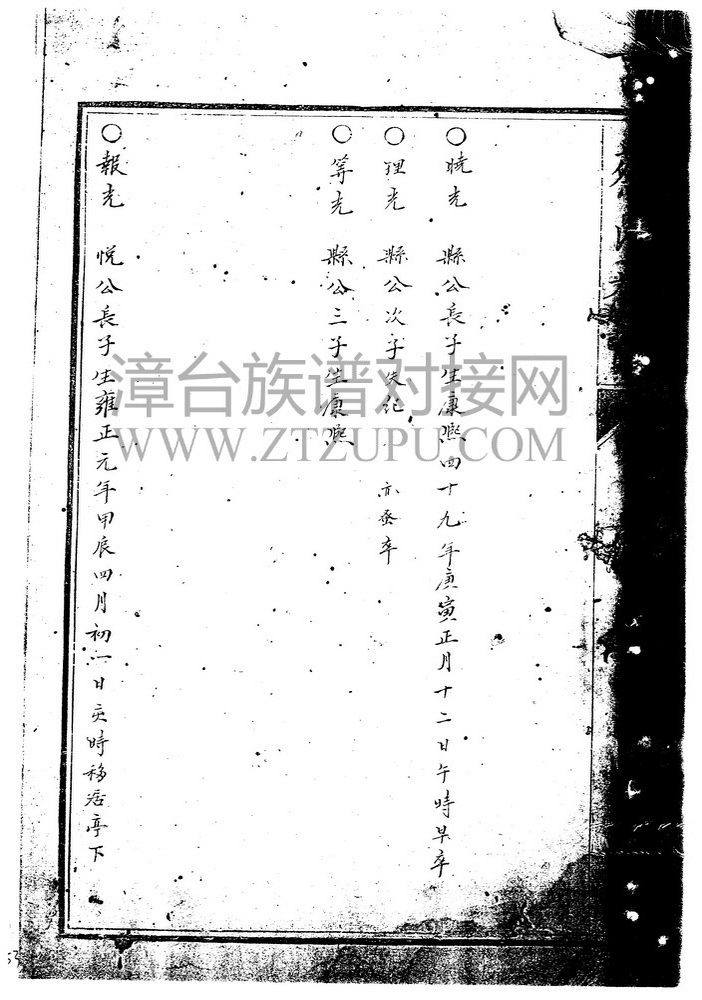 ○曉光 縣公長子生康熙四十九年庚寅正月十二日午時早卒
○理光 縣公次子失紀 亦蚤卒
○筭光 縣公三子生康熙
○報光 悅公長子生雍正元年甲辰四月初一日亥時移居亭下
漳台族谱对接网
WWW.ZTZUPU.COM